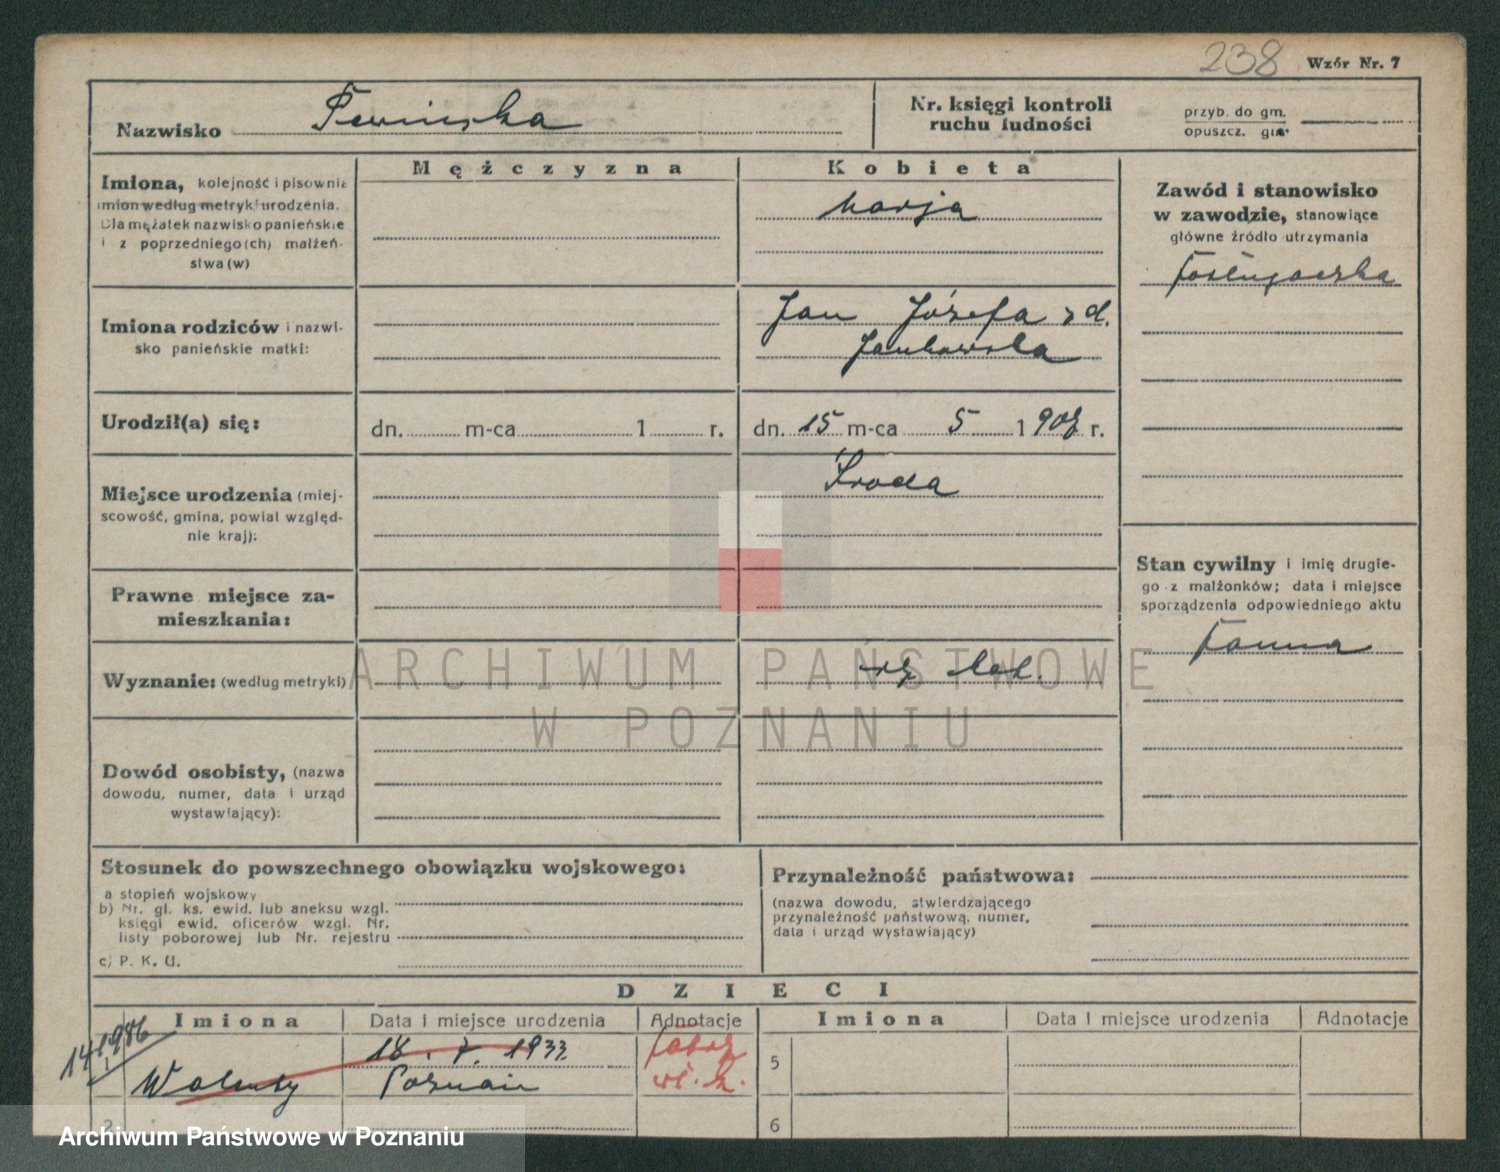 238 Wzór Nr. 7
Nazwisko
Nr. księgi kontroli
ruchu ludności
przyb. do gm.
opuszcz. gm.
Imiona, kolejność i pisownia
imion według metryki urodzenia.
Dla mężatek nazwisko panieńskie
i z poprzedniego(ch) małżeń-
stwa(w)
Mężczyzna
Kobieta
Marja
Zawód i stanowisko
w zawodzie, stanowiące
główne źródło utrzymania
Posługaczka
Imiona rodziców i nazwi-
sko panieńskie matki:
Jan Józefa z d.
Jankowska
Urodził(a) się:
dn. m-ca 1 r.
dn. 15 m-ca 5 1907 r.
Miejsce urodzenia (miej-
scowość, gmina, powiat względ-
nie kraj):
Środa
Prawne miejsce za-
mieszkania:
Stan cywilny i imię drugie-
go z małżonków; data i miejsce
sporządzenia odpowiedniego aktu
Panna
Wyznanie: (według metryki)
rz. kat.
ARCHIWUM PAŃSTWOWE
W POZNANIU
Dowód osobisty, (nazwa
dowodu, numer, data i urząd
wystawiający):
Stosunek do powszechnego obowiązku wojskowego:
a stopień wojskowy
b) Nr. gl. ks. ewid. lub aneksu wzgl.
księgi ewid. oficerów wzgl. Nr.
listy poborowej lub Nr. rejestru
c) P. K. U.
Przynależność państwowa:
(nazwa dowodu, stwierdzającego
przynależność państwową, numer,
data i urząd wystawiający)
DZIECI
Imiona Data i miejsce urodzenia Adnotacje
Imiona Data i miejsce urodzenia Adnotacje
18. 7. 1933
Walenty Poznań
5
2
6
Archiwum Państwowe w Poznaniu